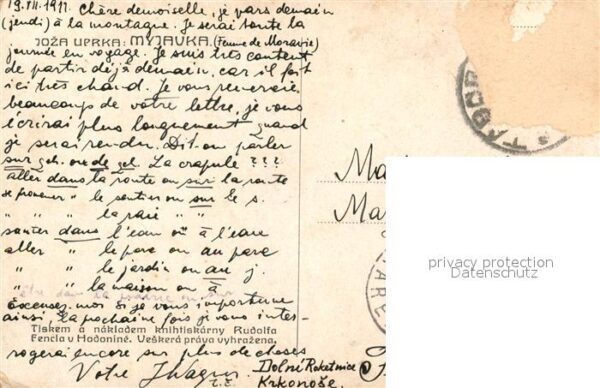 19.VII.1911. Chère demoiselle, je pars demain
(jeudi) à la montagne. Je serai toute la
JOŽA UPRKA: MYJAVKA. (Femme de Moravie)
journée en voyage. Je suis très content
de partir déjà demain, car il fait
ici très chaud. Je vous remercie
beaucoup de votre lettre, je vous
écrirai plus longuement quand
je serai rendu. Dit-on parler
sur qch. ou de qch. La crapule ???
aller dans la route ou sur la route
se promener " le sentier ou sur le s.
" " la raie " "
sauter dans l'eau ou à l'eau
aller " le parc ou au parc
" " le jardin ou au j.
" " la maison ou à
être dans la
Excusez-moi si je vous importune
ainsi, la prochaine fois je vous inter-
Tiskem a nákladem knihtiskárny Rudolfa
Fencla v Hodoníně. Veškerá práva vyhražena.
rogerai encore sur plus de choses
Votre
Dolní Roketnice
Krkonoše.
Ma
Ma
TÁBOR
privacy protection
Datenschutz